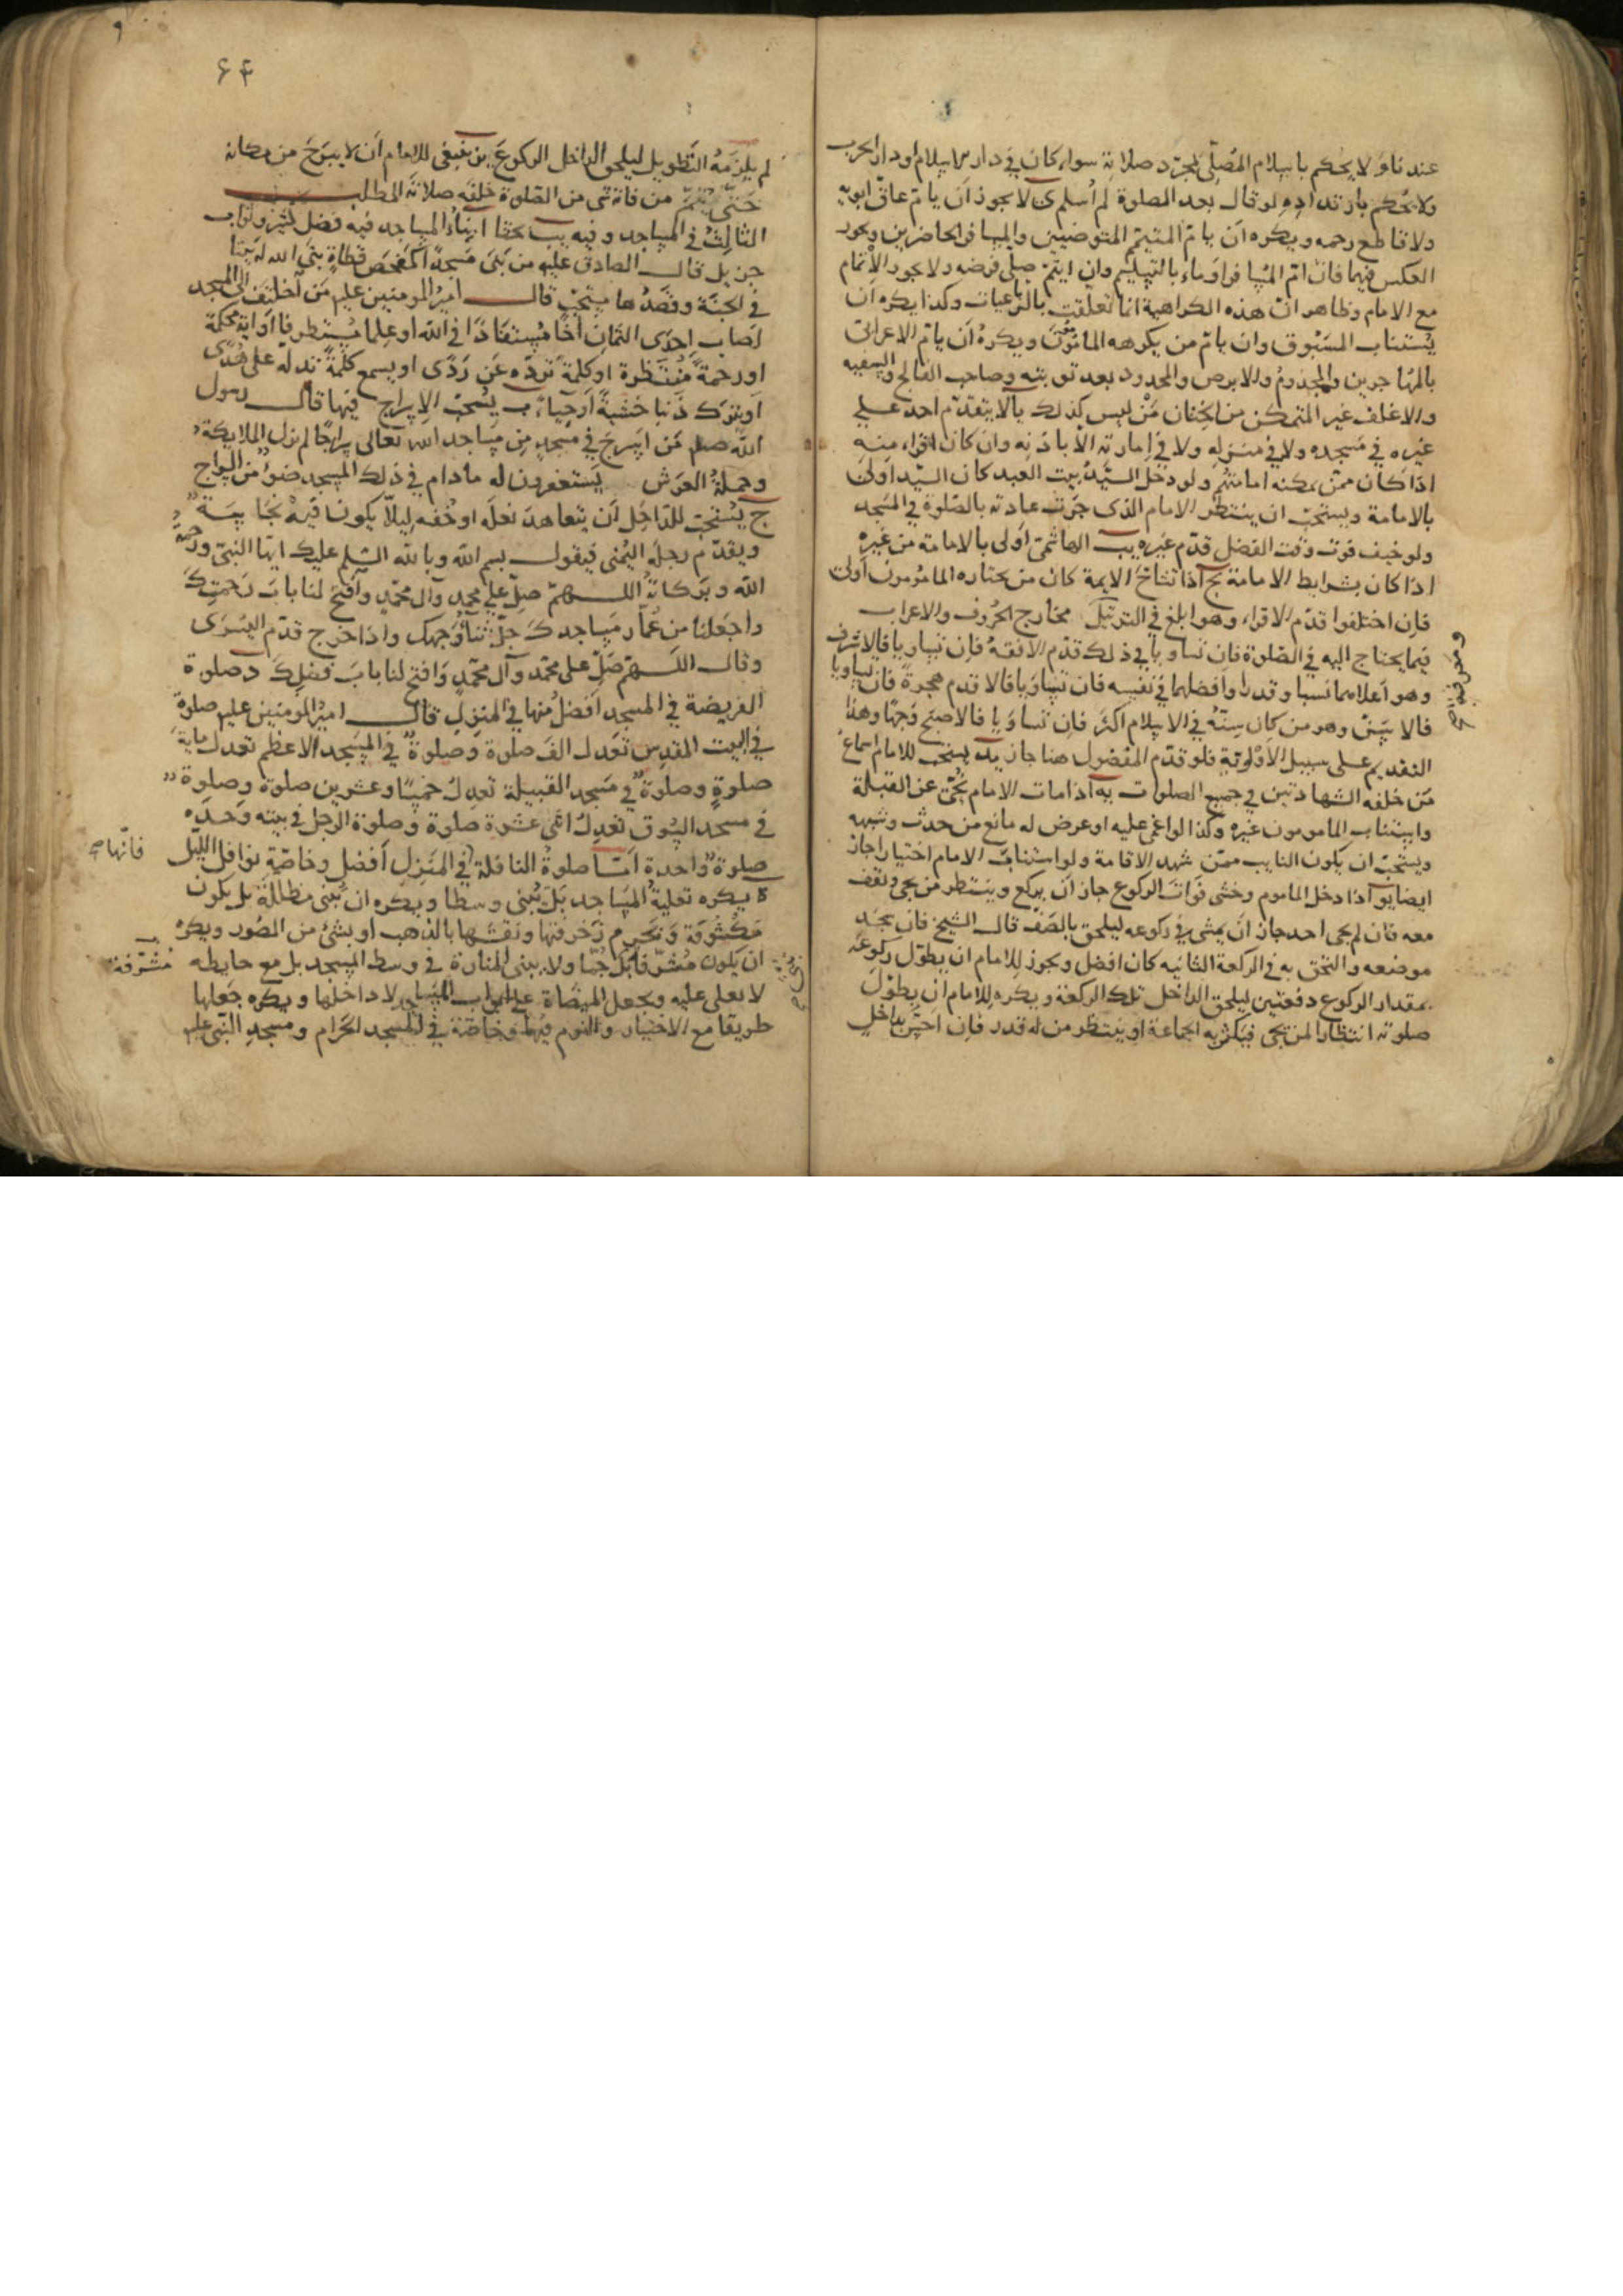 عندنا و لا يحكم باسلام المصلى بمجرد صلاته سواء كان فى دار الاسلام او دار الحرب
ولا يحكم بارتداده لو قال بعد الصلوة لم اسلم ى لا يجوز ان يام عاق ابويه
ولا قاطع رحمه ويكره ان يام المتيمم المتوضيين والمسافر الحاضرين ويجوز
العكس فيهما فان ام المسافر اوماء بالتسليم وان ايتم صلى فرضه ولا يجوز الاتمام
مع الامام وظاهر ان هذه الكراهية انما تعلقت بالرباعيات وكذا يكره ان
يستناب المسبوق وان يام من يكرهه المامومون ويكره ان يام الاعرابى
بالمهاجرين والمجذوم والابرص والمحدود بعد توبته وصاحب الفالج والسفيه
والاغلف غير المتمكن من الختان من ليس كذلك يا لا يتقدم احد على
غيره في مسجده ولا في منزله ولا في امارته الا باذنه وان كان اقراء منه
اذا كان ممن يمكنه امامتهم ولو دخل السيد بيت العبد كان السيد اولى
بالامامة ويستحب ان ينتظر الامام الذى جرت عادته بالصلوة في المسجد
ولو خيف فوت وقت الفضل قدم غيره يب الهاشمى اولى بالامامة من غيره
اذا كان بشرايط الامامة يج اذا تشاح الايمة كان من يختاره المامومون اولى
فان اختلفوا قدم الاقراء وهو ابلغ في الترتيل مخارج الحروف والاعراب
فيما يحتاج اليه في الصلوة فان تساويا في ذلك قدم الافقه فان تساويا فالاشرف
وهو اعلاهما نسبا وقدرا وافضلهما في نفسه فان تساويا فالاقدم هجرة فان تساويا
فالاسن وهو من كان سنه في الاسلام اكثر فان تساويا فالاصبح وجها وهذا
التقديم على سبيل الاولوية فلو قدم المفضول هنا جاز يد يستحب للامام اسماع
من خلفه الشهادتين في جميع الصلوات يه اذا مات الامام نحى عن القبلة
واستناب المامومون غيره وكذا لو اغمى عليه او عرض له مانع من حدث وشبهه
ويستحب ان يكون النايب ممن شهد الاقامة ولو استناب الامام اختيارا جاز
ايضا يو اذا دخل الماموم وخشى فوات الركوع جاز ان يركع وينتظر من يجى ويقف
معه فان لم يجى احد جاز ان يمشى في ركوعه ليلحق بالصف قال الشيخ فان سجد
موضعه والتحق به في الركعة الثانيه كان افضل ويجوز للامام ان يطول ركوعه
بمقدار الركوع دفعتين ليلحق الداخل تلك الركعة ويكره للامام ان يطول
صلوته انتظارا لمن يجى فيكثر به الجماعة او ينتظر من له قدر فان احس بداخل
٦٤
لم يلزمه التطويل ليلحق الداخل الركوع ينبغى للامام ان لا يبرح من مكانه
حتى يتم من فاته شى من الصلوة خلفه صلاته المطلب
الثالث في المساجد وفيه بحثا ا بناء المساجد فيه فضل كثير وثواب
جزيل قال الصادق عليه من بنى مسجدا كمفحص قطاة بنى الله له بيتا
في الجنة وقصدها مستحب قال امير المومنين عليه من اختلف الى المسجد
اصاب احدى الثمان اخا مستفادا في الله او علما مستطرفا او اية محكمة
او رحمة منتظرة او كلمة ترده عن ردى او يسمع كلمة تدله على هدى
او يترك ذنبا خشية او حياء ب يستحب الاسراج فيها قال رسول
الله صلم من اسرج في مسجد من مساجد الله تعالى سراجا لم تزل الملايكة
وحملة العرش يستغفرون له ما دام في ذلك المسجد ضوء من السراج
ج يستحب للداخل ان يتعاهد نعله او خفه ليلا يكون فيه نجاسة
ويقدم رجله اليمنى فيقول بسم الله وبالله السلم عليك ايها النبى ورحمة
الله وبركاته اللهم صل على محمد وآل محمد وافتح لنا باب رحمتك
واجعلنا من عمار مساجدك جل ثناؤ وجهك واذا خرج قدم اليسرى
وقال اللهم صل على محمد وآل محمد وافتح لنا باب فضلك د صلوة
الفريضة في المسجد افضل منها في المنزل قال امير المومنين عليه صلوة
في البيت المقدس تعدل الف صلوة وصلوة في المسجد الاعظم تعدل ماية
صلوة وصلوة في مسجد القبيلة تعدل خمسا وعشرين صلوة وصلوة
في مسجد السوق تعدل اثنى عشرة صلوة وصلوة الرجل في بيته وحده
صلوة واحدة اما صلوة النافلة في المنزل افضل وخاصة نوافل الليل
فانها
ه يكره تعلية المساجد بل تبنى وسطا ويكره ان تبنى مظللة بل يكون
مكشوفة وتحرم زخرفتها ونقشها بالذهب او بشئ من الصور ويكره
ان يكون مشرفا بل جما ولا يبنى المنارة في وسط المسجد بل مع حايطه
مشرفة
لا يعلى عليه ويجعل الميضاة على ابواب المساجد لا داخلها ويكره جعلها
طريقا مع الاختيار والنوم فيها وخاصة في المسجد الحرام ومسجد النبى عليه